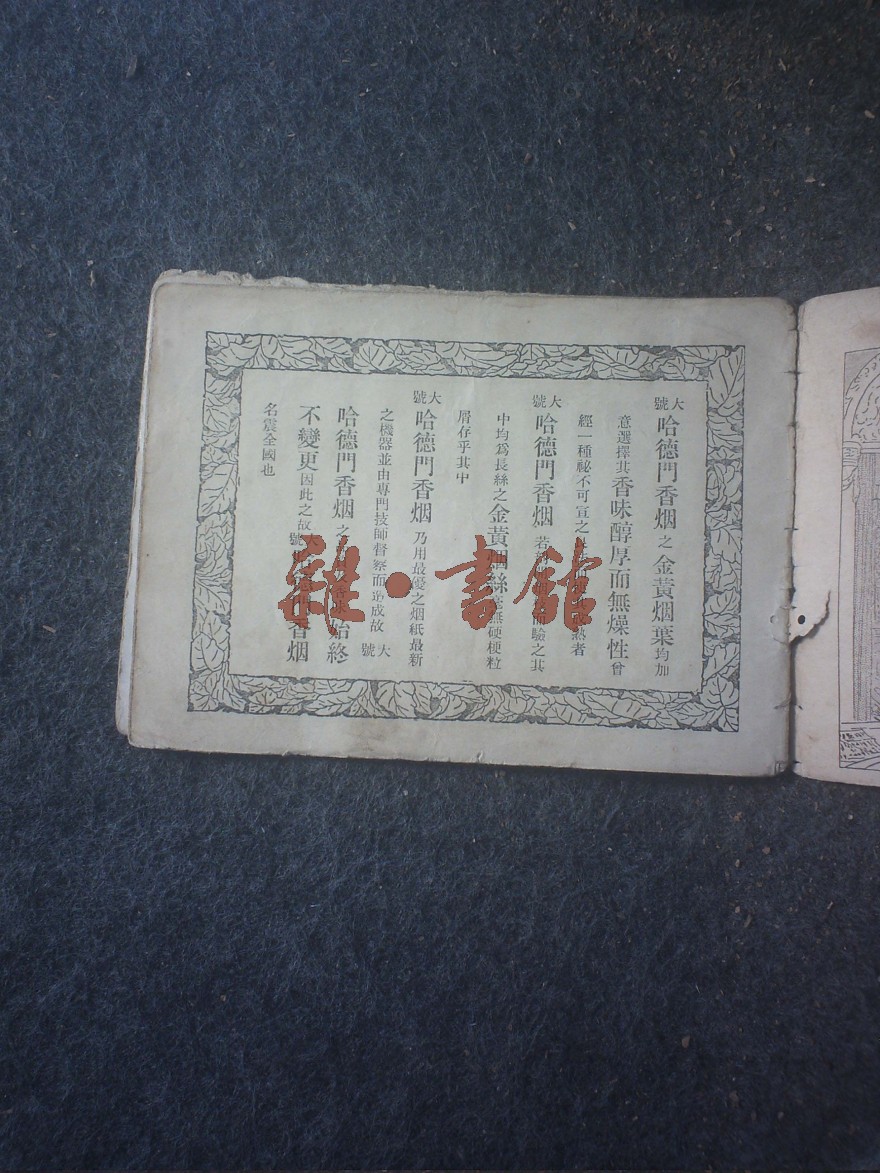 大號哈德門香烟之金黃烟葉均加
意選擇其香味醇厚而無燥性曾
經一種祕不可宣之熟者
大號哈德門香烟若驗之其
中均爲長絲之金黃烟絲無硬梗粒
屑存乎其中
大號哈德門香烟乃用最優之烟紙最新
之機器並由專門技師督察而造成故大號
哈德門香烟之始終
不變更因此之故大號香烟
名震全國也
雜·書館